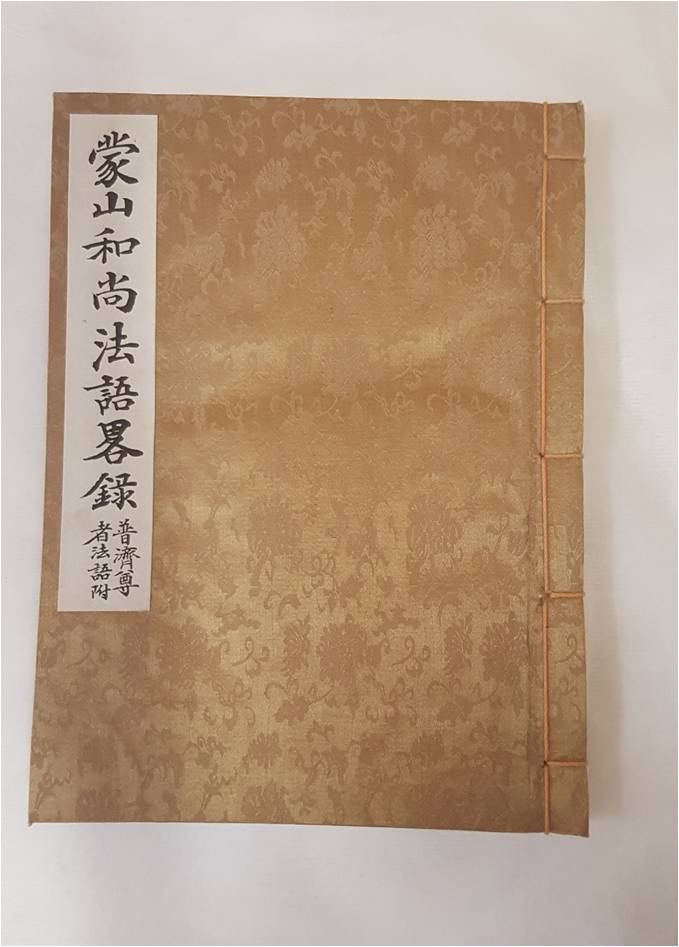 蒙山和尚法語畧錄
普濟尊
者法語附